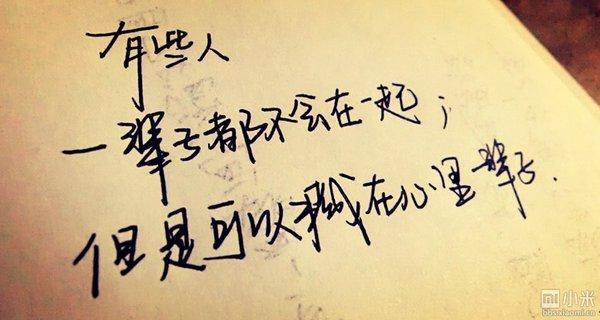 有些人
一辈子都不会在一起;
但是可以藏在心里一辈子.
mi 小米
bbs.xiaomi.cn